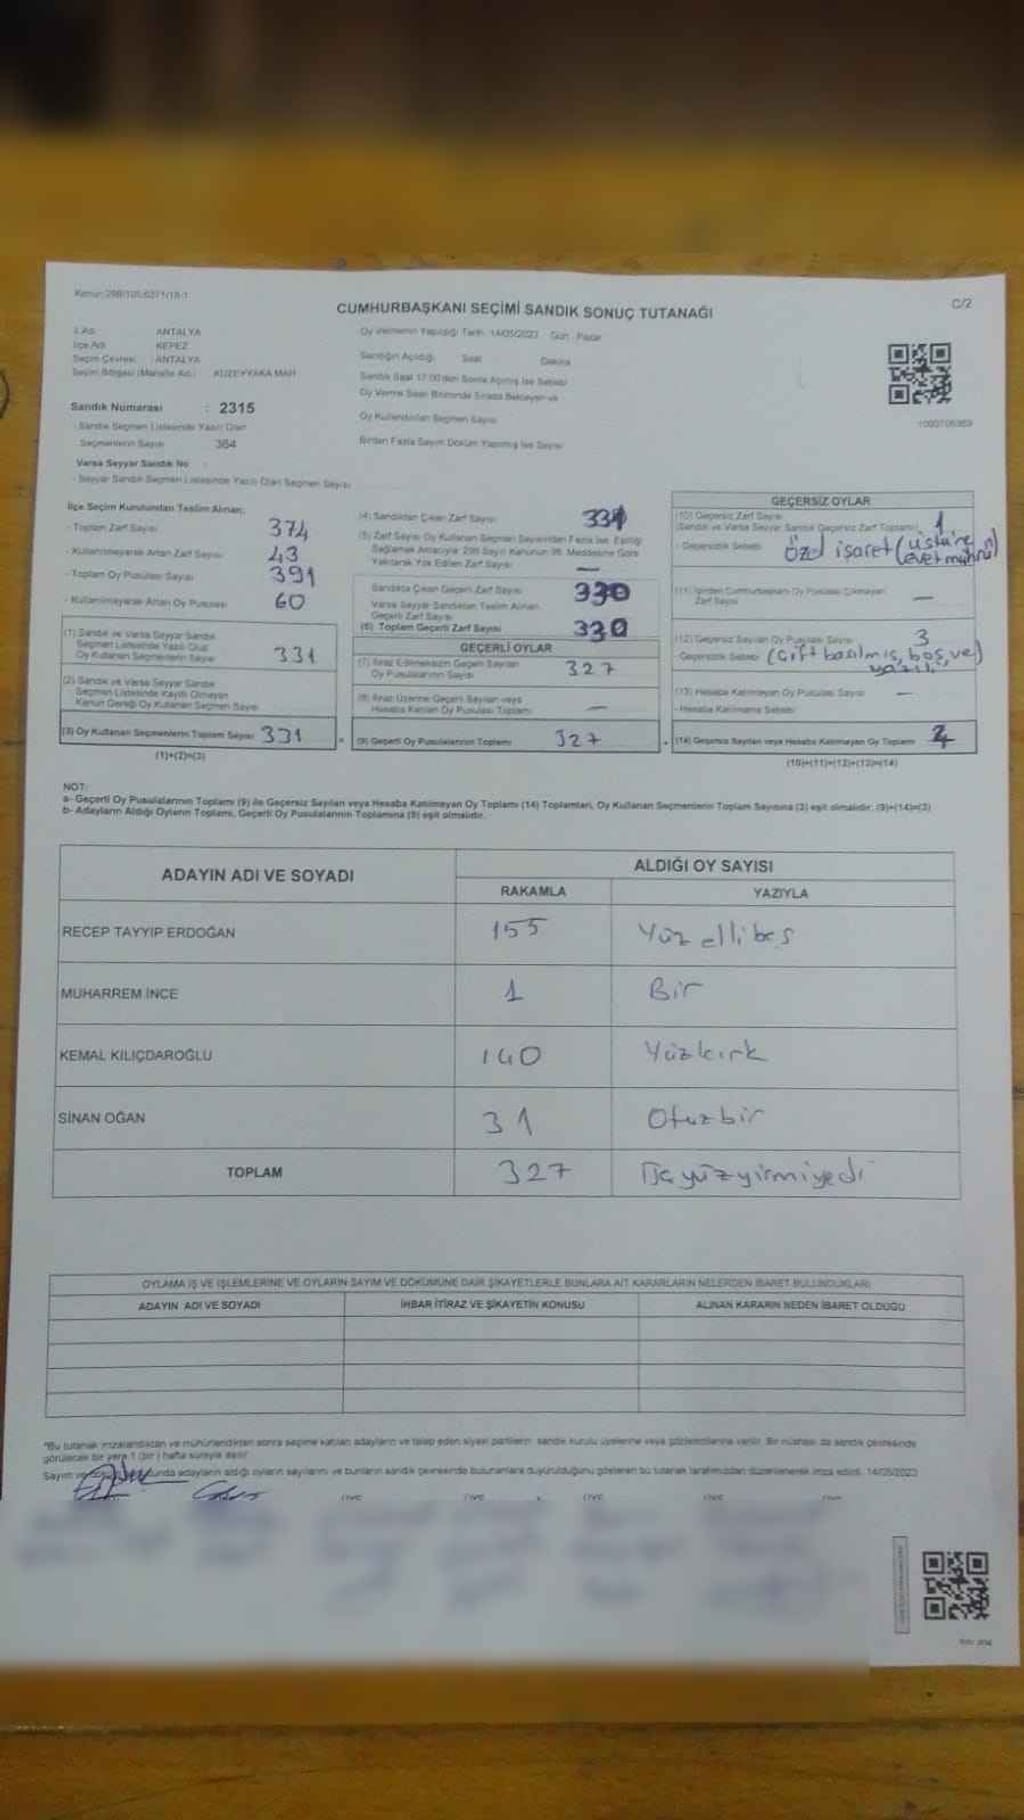 Kanun:298/105,6271/18-1
C/2
CUMHURBAŞKANI SEÇİMİ SANDIK SONUÇ TUTANAĞI
İl Adı ANTALYA
İlçe Adı KEPEZ
Seçim Çevresi ANTALYA
Seçim Bölgesi (Mahalle Ad.) KUZEYYAKA MAH
Sandık Numarası : 2315
- Sandık Seçmen Listesinde Yazılı Olan
Seçmenlerin Sayısı 364
Varsa Seyyar Sandık No
- Seyyar Sandık Seçmen Listesinde Yazılı Olan Seçmen Sayısı
Oy Vermenin Yapıldığı Tarih: 14/05/2023 Gün : Pazar
Sandığın Açıldığı Saat Dakika
Sandık Saat 17:00'den Sonra Açılmış İse Sebebi
Oy Verme Saati Bitiminde Sırada Bekleyen ve
Oy Kullandırılan Seçmen Sayısı
Birden Fazla Sayım Döküm Yapılmış İse Sayısı
İlçe Seçim Kurulundan Teslim Alınan;
- Toplam Zarf Sayısı 374
- Kullanılmayarak Artan Zarf Sayısı 43
- Toplam Oy Pusulası Sayısı 391
- Kullanılmayarak Artan Oy Pusulası 60
(1) Sandık ve Varsa Seyyar Sandık
Seçmen Listesinde Yazılı Olup
Oy Kullanan Seçmenlerin Sayısı 331
(2) Sandık ve Varsa Seyyar Sandık
Seçmen Listesinde Kayıtlı Olmayan
Kanun Gereği Oy Kullanan Seçmen Sayısı
(3) Oy Kullanan Seçmenlerin Toplam Sayısı 331
(1)+(2)=(3)
(4) Sandıktan Çıkan Zarf Sayısı 331
(5) Zarf Sayısı Oy Kullanan Seçmen Sayısından Fazla İse, Eşitliği
Sağlamak Amacıyla 298 Sayılı Kanunun 98. Maddesine Göre
Yakılarak Yok Edilen Zarf Sayısı —
Sandıkta Çıkan Geçerli Zarf Sayısı 330
Varsa Seyyar Sandıktan Teslim Alınan
Geçerli Zarf Sayısı
(6) Toplam Geçerli Zarf Sayısı 330
GEÇERLİ OYLAR
(7) İtiraz Edilmeksizin Geçerli Sayılan
Oy Pusulalarının Sayısı 327
(8) İtiraz Üzerine Geçerli Sayılan veya
Hesaba Katılan Oy Pusulası Toplamı —
(9) Geçerli Oy Pusulalarının Toplamı 327
GEÇERSİZ OYLAR
(10) Geçersiz Zarf Sayısı
(Sandık ve Varsa Seyyar Sandık Geçersiz Zarf Toplamı) 1
- Geçersizlik Sebebi özel işaret (üstüne
evet mührü)
(11) İçinden Cumhurbaşkanı Oy Pusulası Çıkmayan
Zarf Sayısı —
(12) Geçersiz Sayılan Oy Pusulası Sayısı 3
- Geçersizlik Sebebi (çift basılmış, boş, ve)
yazılı
(13) Hesaba Katılmayan Oy Pusulası Sayısı —
- Hesaba Katılmama Sebebi
(14) Geçersiz Sayılan veya Hesaba Katılmayan Oy Toplamı 4
(10)+(11)+(12)+(13)=(14)
NOT:
a- Geçerli Oy Pusulalarının Toplamı (9) ile Geçersiz Sayılan veya Hesaba Katılmayan Oy Toplamı (14) Toplamları, Oy Kullanan Seçmenlerin Toplam Sayısına (3) eşit olmalıdır. (9)+(14)=(3)
b- Adayların Aldığı Oyların Toplamı, Geçerli Oy Pusulalarının Toplamına (9) eşit olmalıdır.
ADAYIN ADI VE SOYADI
ALDIĞI OY SAYISI
RAKAMLA YAZIYLA
RECEP TAYYIP ERDOĞAN 155 Yüz elli beş
MUHARREM İNCE 1 Bir
KEMAL KILIÇDAROĞLU 140 Yüzkırk
SİNAN OĞAN 31 Otuzbir
TOPLAM 327 Üçyüzyirmiyedi
OYLAMA İŞ VE İŞLEMLERİNE VE OYLARIN SAYIM VE DÖKÜMÜNE DAİR ŞİKAYETLERLE BUNLARA AİT KARARLARIN NELERDEN İBARET BULUNDUKLARI
ADAYIN ADI VE SOYADI İHBAR İTİRAZ VE ŞİKAYETİN KONUSU ALINAN KARARIN NEDEN İBARET OLDUĞU
*Bu tutanak imzalandıktan ve mühürlendikten sonra seçime katılan adayların ve talep eden siyasi partilerin sandık kurulu üyelerine veya gözlemcilerine verilir. Bir nüshası da sandık çevresinde
görülecek bir yere 1 (bir) hafta süreyle asılır.
adayların aldığı oyların sayılarını ve bunların sandık çevresinde bulunanlara duyurulduğunu gösteren bu tutanak tarafımızdan düzenlenerek imza edildi. 14/05/2023